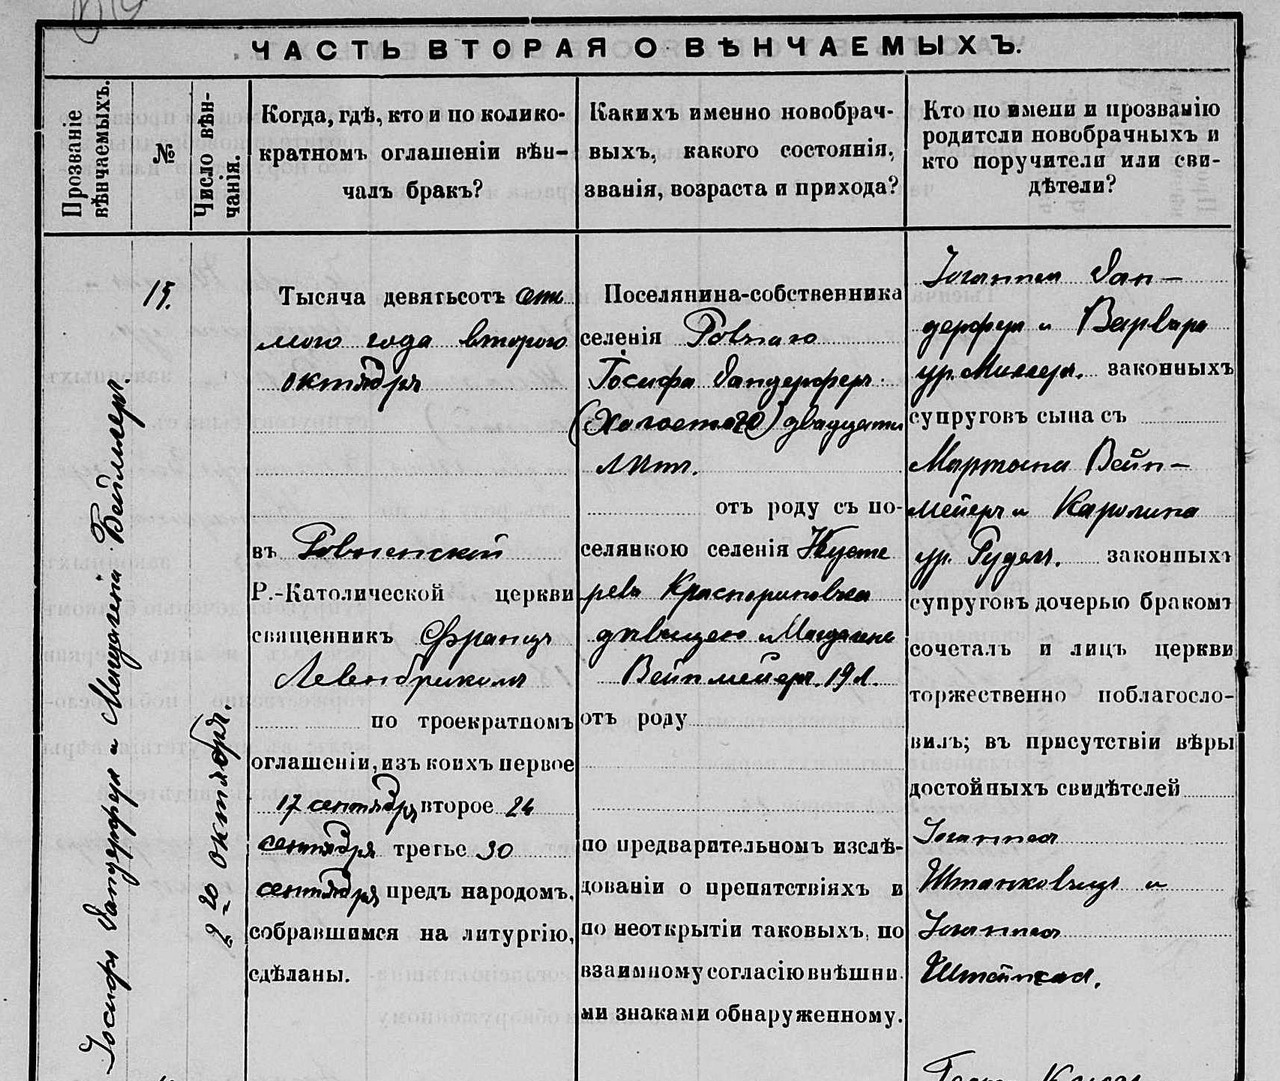 ЧАСТЬ ВТОРАЯ О ВѢНЧАЕМЫХЪ.
Прозваніе вѣнчаемыхъ.
№
Число вѣн-
чанія.
Когда, гдѣ, кто и по колико-
кратномъ оглашеніи вѣн-
чалъ бракъ?
Какихъ именно новобрач-
выхъ, какого состоянія,
званія, возраста и прихода?
Кто по имени и прозванію
родители новобрачныхъ и
кто поручители или сви-
дѣтели?
Іосифъ и Магдалена
15.
2-го октября.
Тысяча девятьсотъ седь
мого года второго
октября
въ Ровненской
Р.-Католической церкви
священникъ Францъ
Левенбрикъ
по троекратномъ
оглашеніи, изъ коихъ первое
17 сентября второе 24
сентября третье 30
сентября предъ народомъ,
собравшимся на литургію,
сдѣланы.
Поселянина-собственника
селенія Ровнаго
Іосифа Зандерферъ
(Холостого) двадцати
лѣтъ.
отъ роду съ по-
селянкою селенія Кусте
рево Краснорыновка
дѣвицею Магдалена
Вейнмейеръ. 19 л.
отъ роду
по предварительномъ изслѣ-
дованіи о препятствіяхъ и
по неоткрытіи таковыхъ, по
взаимному согласію внѣшни-
ми знаками обнаруженному.
Іоганнеса Зан-
дерферъ и Варвара
ур. Миллеръ. законныхъ
супруговъ сына съ
Мартына Вейн-
мейеръ и Каролина
ур. Рудель. законныхъ
супруговъ дочерью бракомъ
сочеталъ и лицѣ церкви
торжественно поблагосло-
вилъ; въ присутствіи вѣры
достойныхъ свидѣтелей
Іоганнеса
Штанковичъ и
Іоганнеса